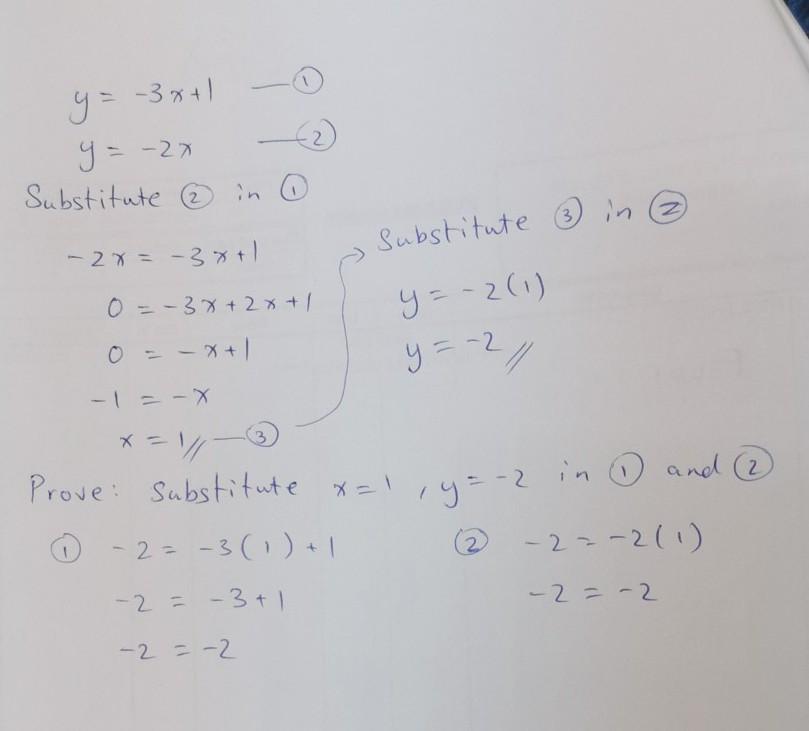 y = -3x+1 — ①
y = -2x — ②
Substitute ② in ①
-2x = -3x+1
0 = -3x+2x+1
0 = -x+1
-1 = -x
x = 1// — ③
Substitute ③ in ②
y = -2(1)
y = -2//
Prove: Substitute x=1, y=-2 in ① and ②
① -2 = -3(1)+1
-2 = -3+1
-2 = -2
② -2 = -2(1)
-2 = -2